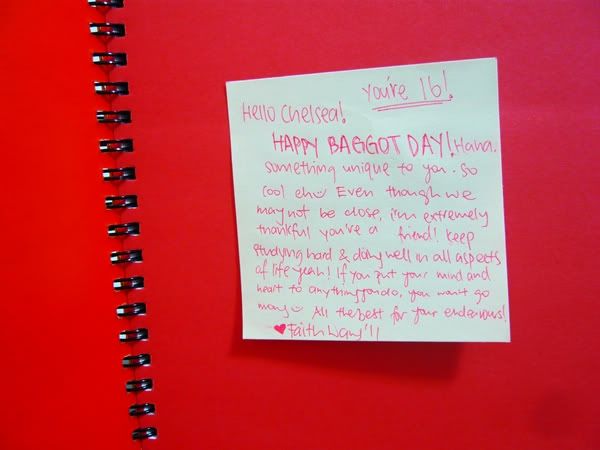 You're 16!
Hello Chelsea!
HAPPY BAGGOT DAY! Haha.
something unique to you. So
cool eh Even though we
may not be close, i'm extremely
thankful you're a friend! Keep
studying hard & doing well in all aspects
of life yeah! If you put your mind and
heart to anything you do, you won't go
wrong All the best for your endeavours!
♥ Faith Wang '11